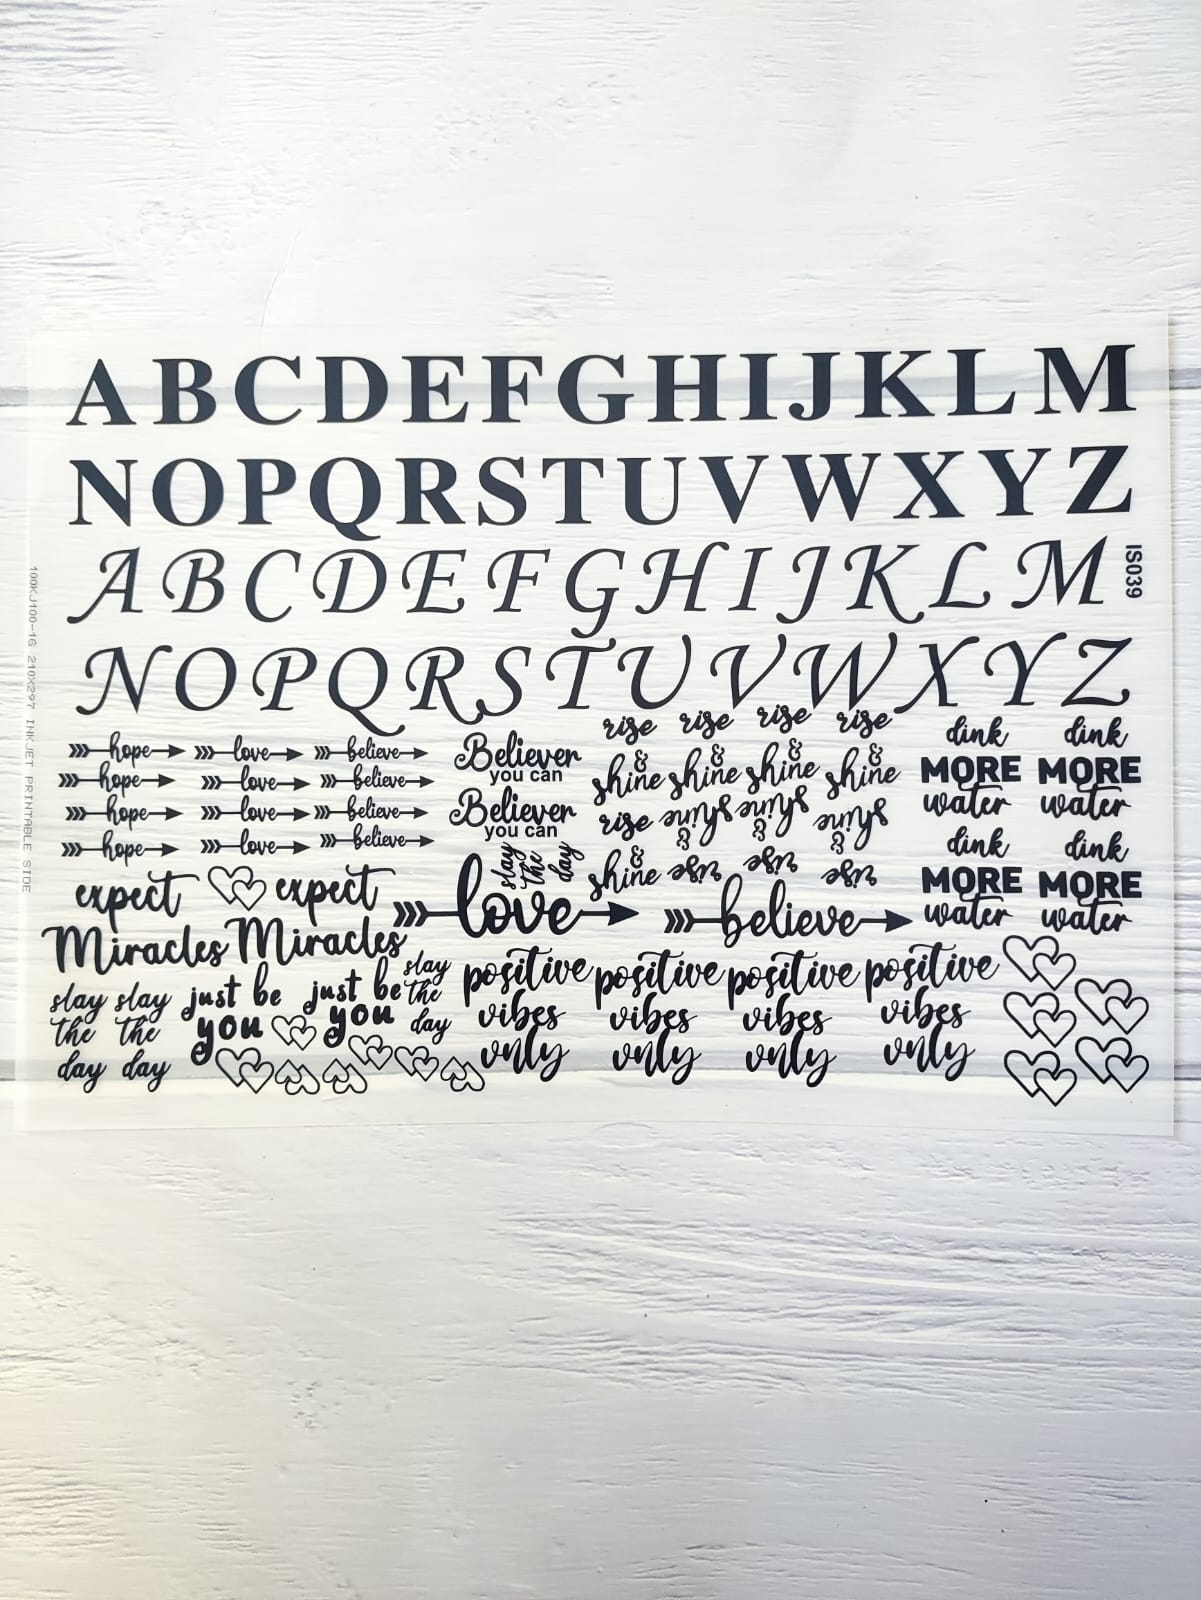 ABCDEFGHIJKLM
NOPQRSTUVWXYZ
ABCDEFGHIJKLM
NOPQRSTUVWXYZ
IS039
100KJ100-1G 210X297 INKJET PRINTABLE SIDE
hope love believe
hope love believe
hope love believe
hope love believe
Believer
you can
Believer
you can
rise rise rise rise
& & & &
shine shine shine shine
rise
&
shine
shine shine shine
& & &
rise rise rise
dink dink
MORE MORE
water water
dink dink
MORE MORE
water water
slay
the
day
expect expect
Miracles Miracles
love believe
slay slay
the the
day day
just be just be
you you
slay
the
day
positive positive positive positive
vibes vibes vibes vibes
only only only only